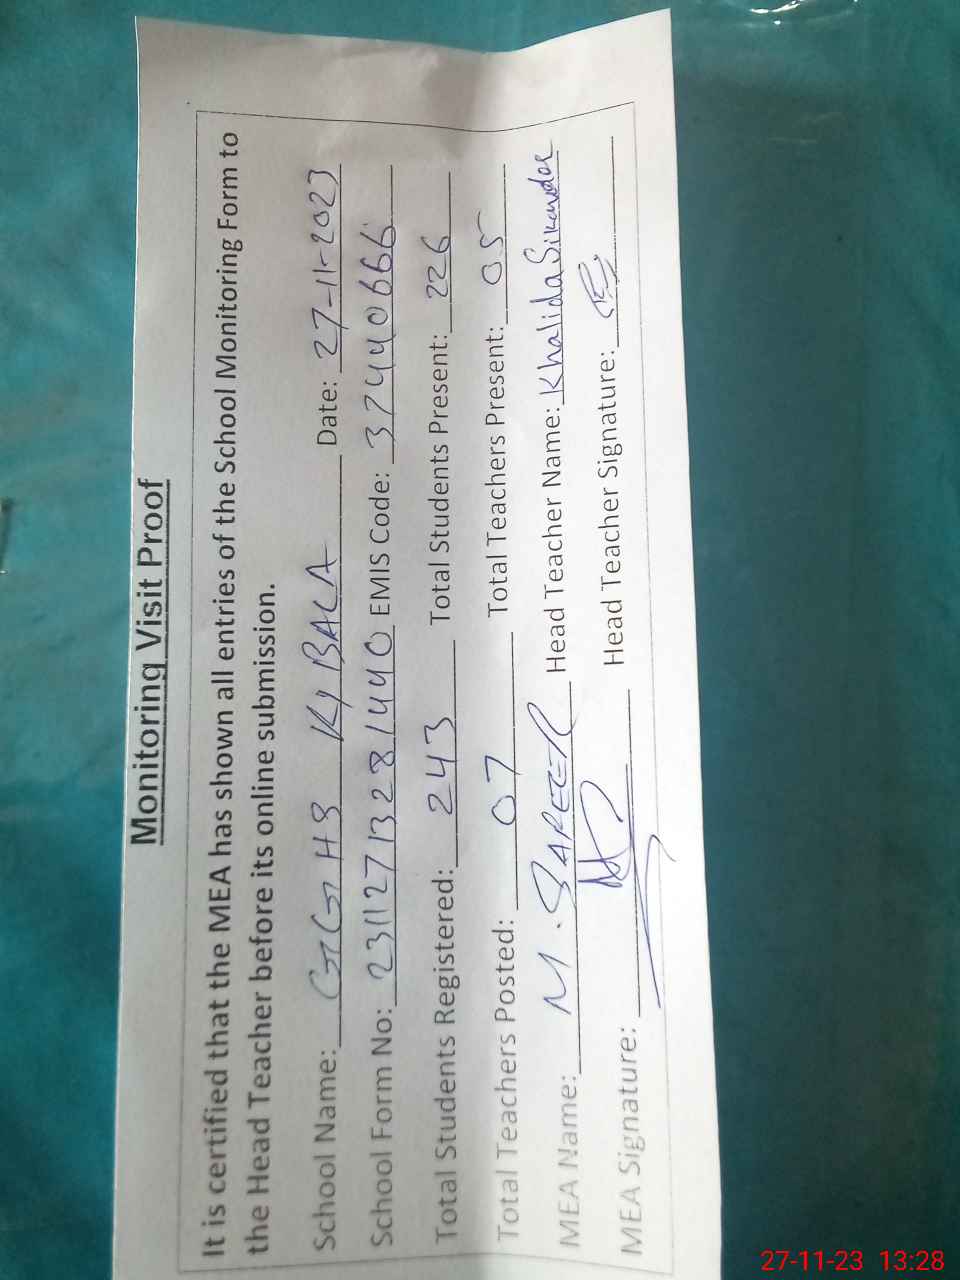 Monitoring Visit Proof
It is certified that the MEA has shown all entries of the School Monitoring Form to
the Head Teacher before its online submission.
School Name: GGHS BALA Date: 27-11-2023
School Form No: 231127132281440 EMIS Code: 37440666
Total Students Registered: 243 Total Students Present: 226
Total Teachers Posted: 07 Total Teachers Present: 05
MEA Name: M. Head Teacher Name: Khalida Sikandar
MEA Signature: Head Teacher Signature:
27-11-23 13:28